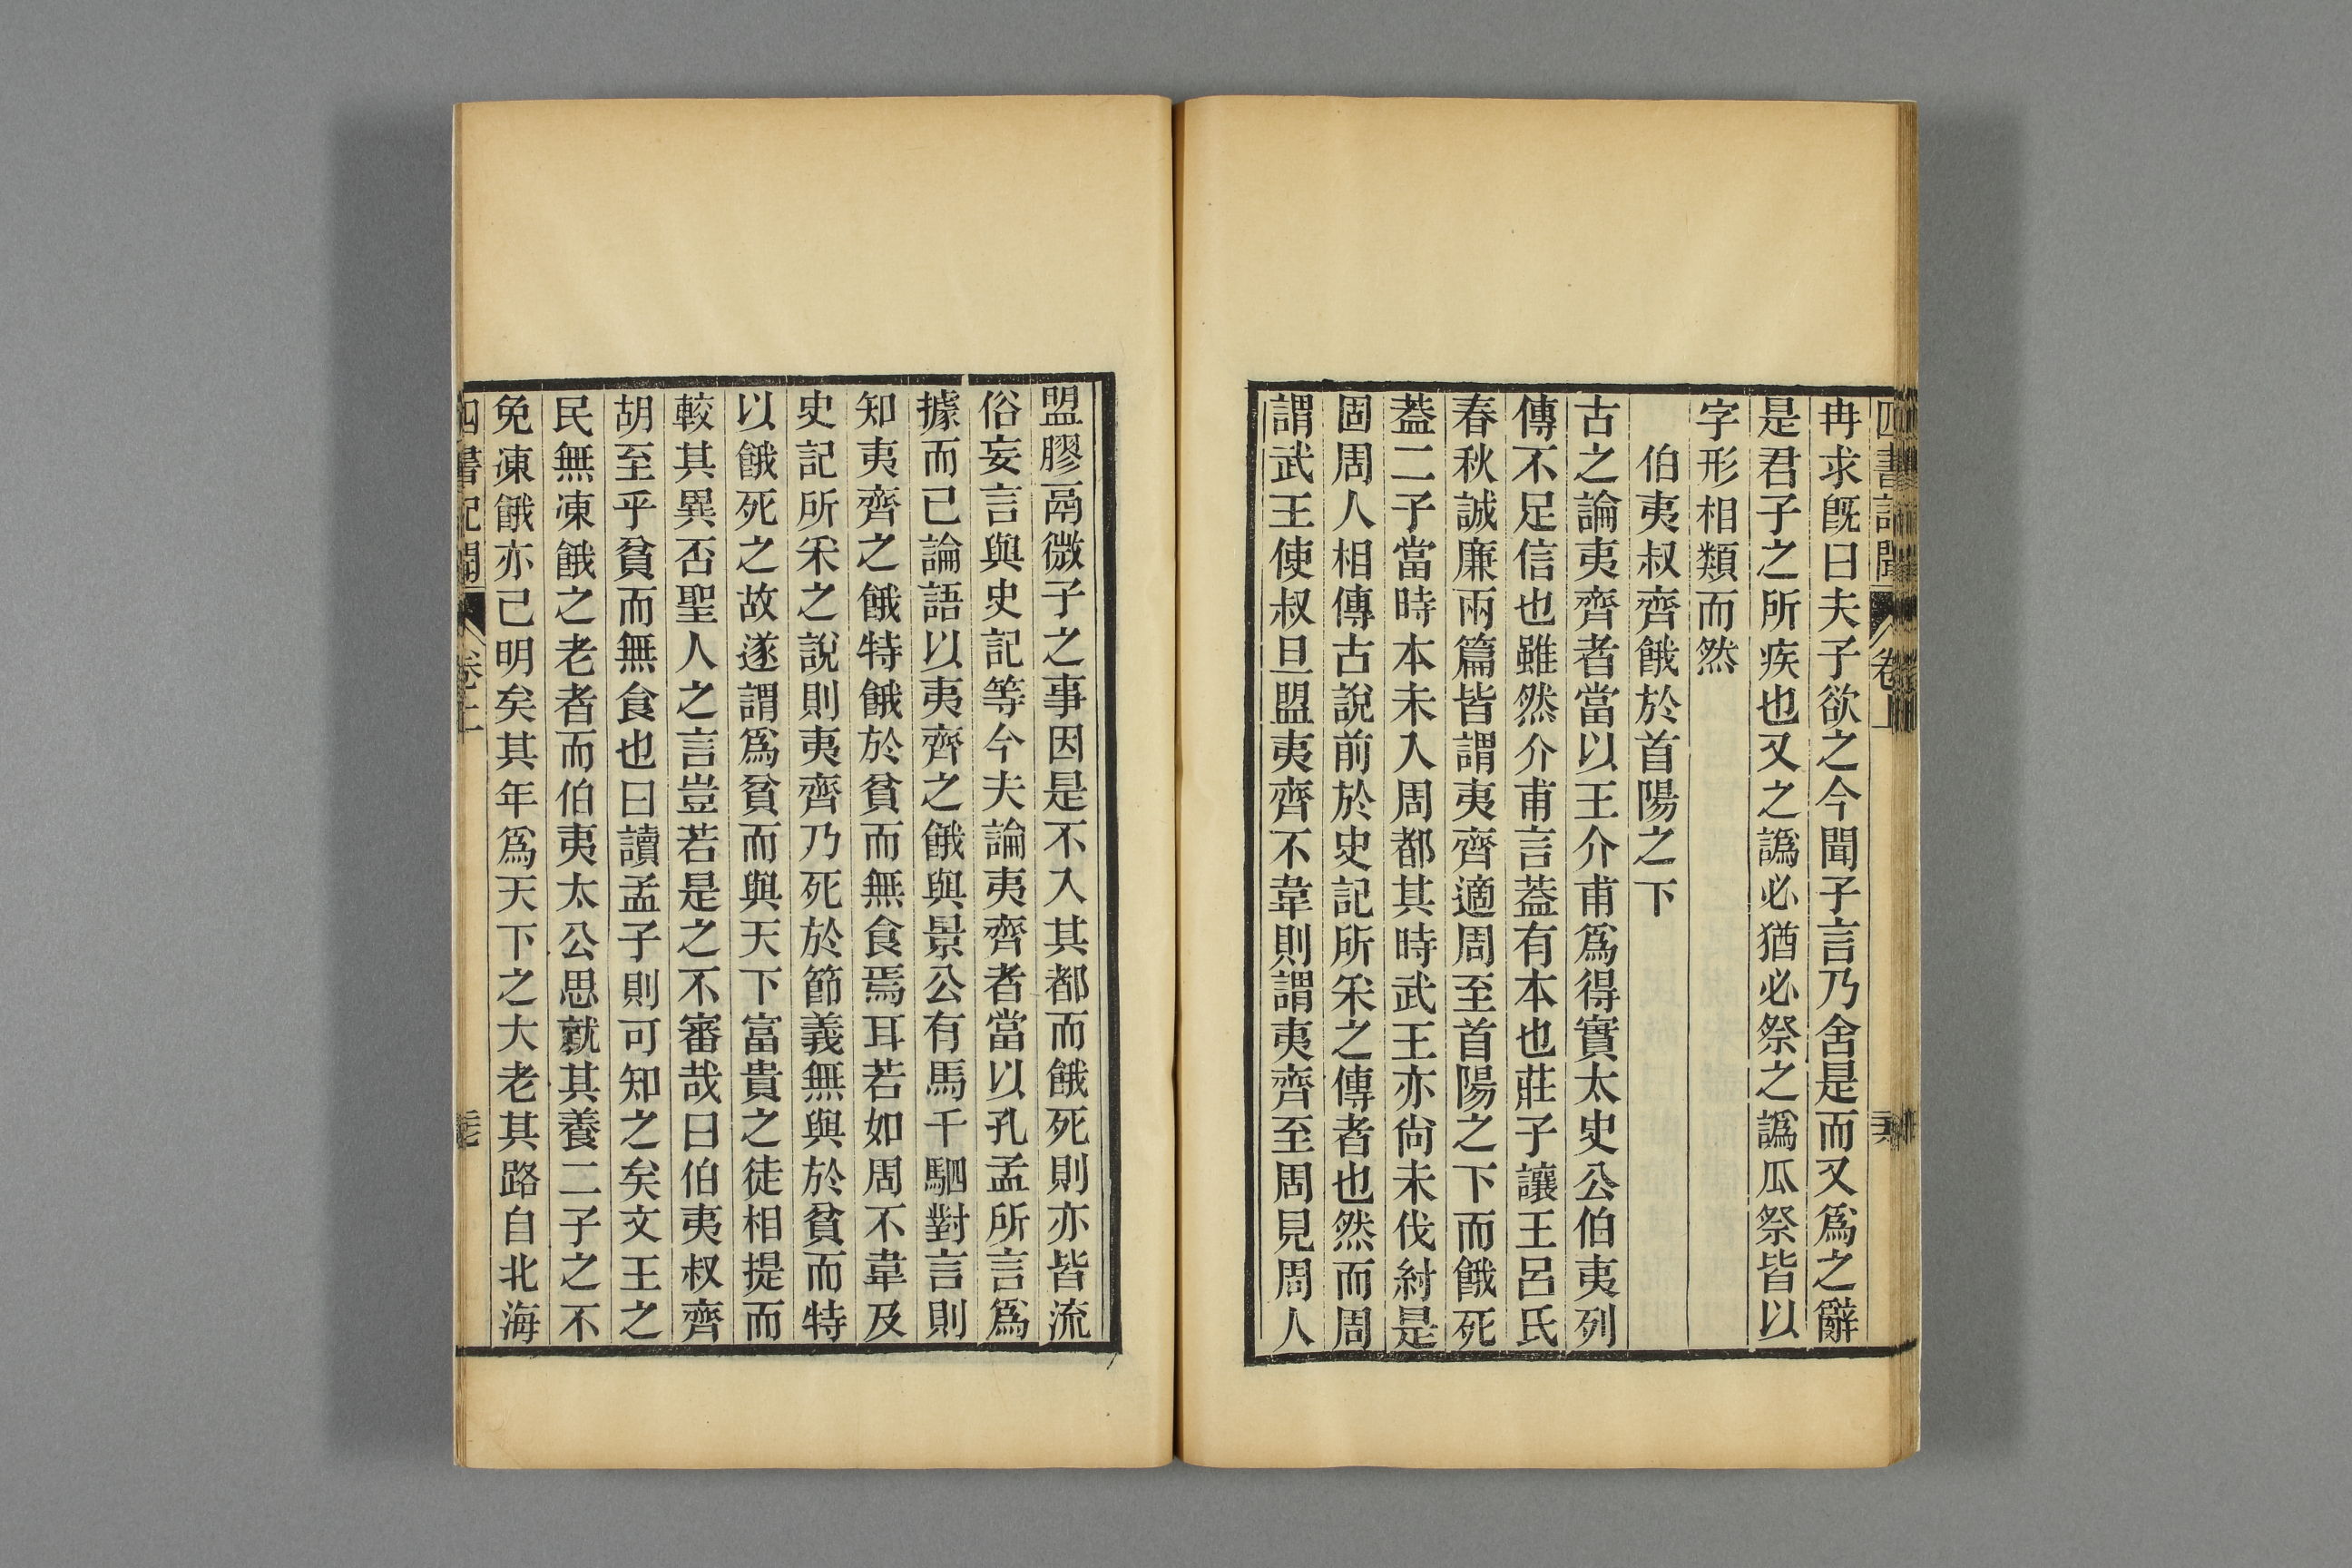 冉求旣曰夫子欲之今聞子言乃舍是而又爲之辭
是君子之所疾也又之譌必猶必祭之譌瓜祭皆以
字形相類而然
伯夷叔齊餓於首陽之下
古之論夷齊者當以王介甫爲得實太史公伯夷列
傳不足信也雖然介甫言葢有本也莊子讓王呂氏
春秋誠廉兩篇皆謂夷齊適周至首陽之下而餓死
葢二子當時本未入周都其時武王亦尙未伐紂是
固周人相傳古說前於史記所采之傳者也然而周
謂武王使叔旦盟夷齊不韋則謂夷齊至周見周人
盟膠鬲微子之事因是不入其都而餓死則亦皆流
俗妄言與史記等今夫論夷齊者當以孔孟所言爲
據而已論語以夷齊之餓與景公有馬千駟對言則
知夷齊之餓特餓於貧而無食焉耳若如周不韋及
史記所采之說則夷齊乃死於節義無與於貧而特
以餓死之故遂謂爲貧而與天下富貴之徒相提而
較其異否聖人之言豈若是之不審哉曰伯夷叔齊
胡至乎貧而無食也曰讀孟子則可知之矣文王之
民無凍餓之老者而伯夷太公思就其養二子之不
免凍餓亦已明矣其年爲天下之大老其路自北海
四書記聞 卷上